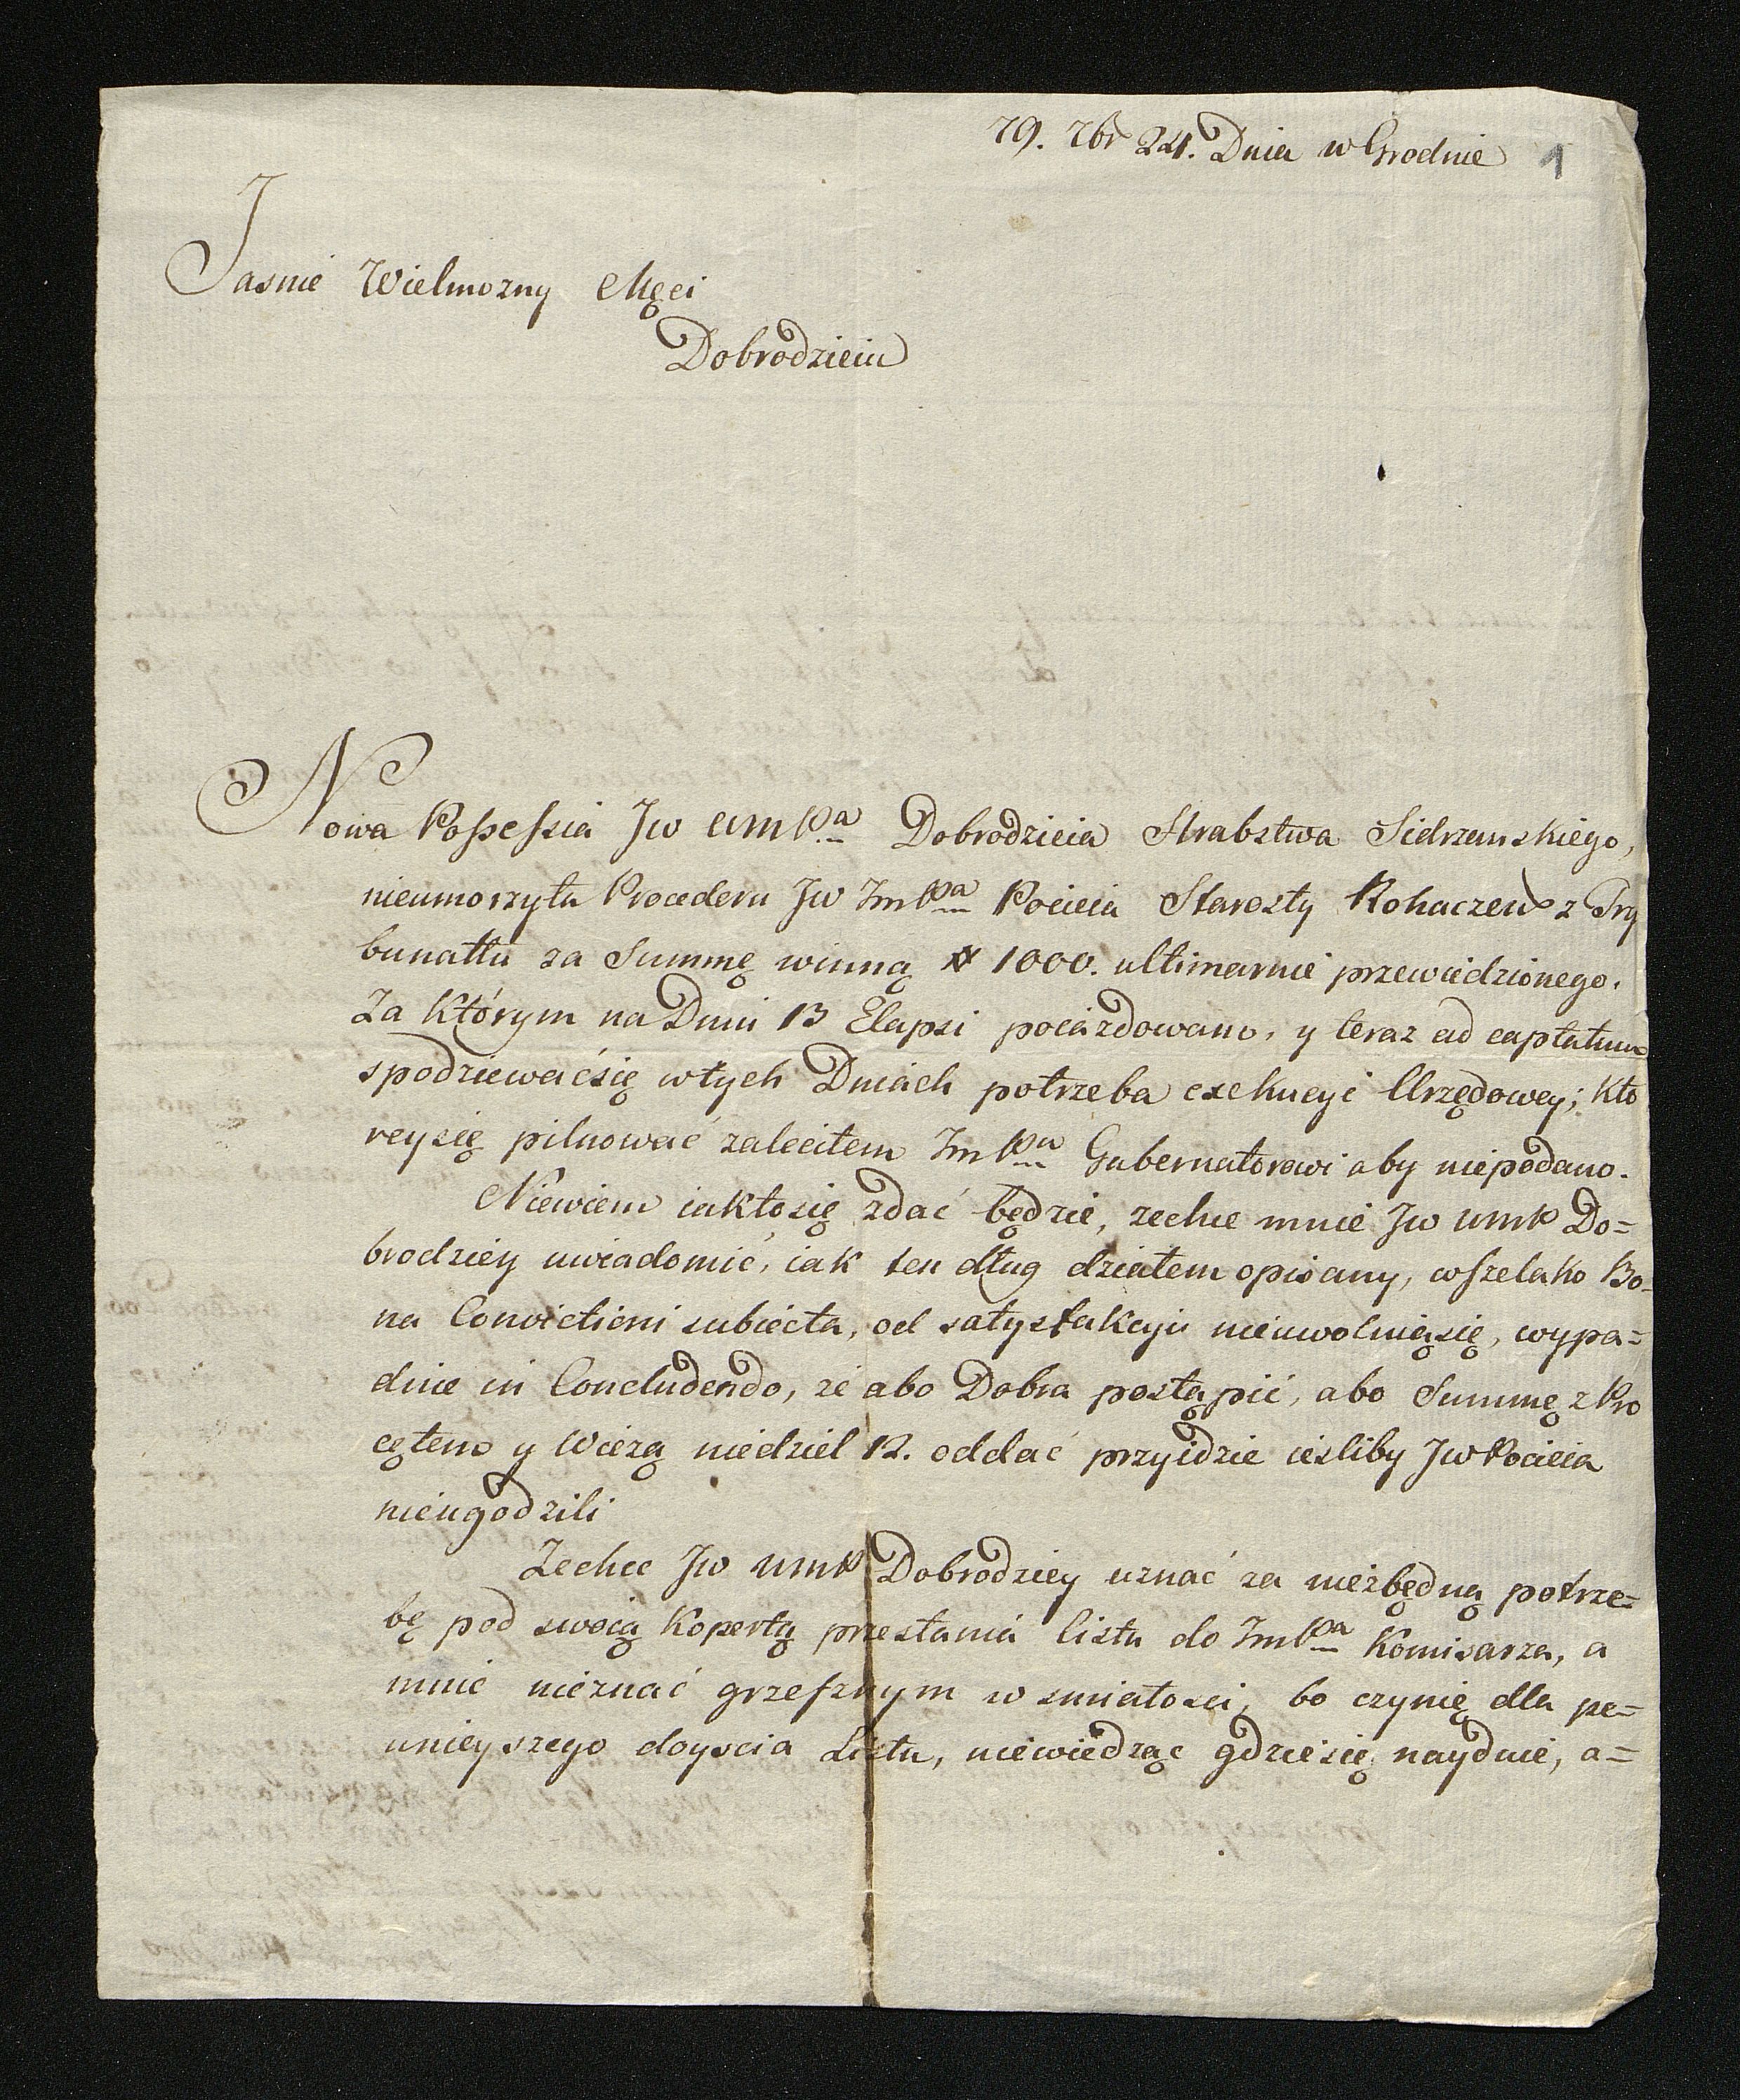 79. 7br 24. Dnia w Grodnie 1
Jasnie Wielmozny Mgci
Dobrodzieiu
Nowa Possessia Jw UmPa Dobrodzieia Hrabstwa Sidrzanskiego,
nieumorzyła Procederu Jw ImPa Pocieia Starosty Rohaczew z Try
bunałłu za Summę winną # 1000. ultimarnie przewiedzionego.
Za którym na Dniu 13 Elapsi poiazdowano, y teraz ad captatum
spodziewaćsię wtych Dniach potrzeba exekucyi Urzędowey; kto
reysię pilnować zaleciłem ImPu Gubernatorowi aby niepodano.
Niewiem iaktosię zdać będzie, zechce mnie Jw UmP Do=
brodziey uwiadomić, iak ten dług działem opisany, wszelako Bo=
na Convictioni subiecta, od satysfakcyi nieuwolniąsię, wypa=
dnie in Concludendo, że abo Dobra postąpić, abo Summę z Pro
cętem y Wieżą niedziel 12. oddać przyidzie ieśliby Jw Pocieia
nieugodzili
Zechce Jw UmP Dobrodziey uznać za niezbędną potrze=
bę pod swoią Kopertą przesłania listu do ImPa Komisarza, a
mnie nieznać grzesznym w smiałosci, bo czynię dla pe=
wnieyszego doyscia Listu, niewiedząc gdziesię naydnie, a=